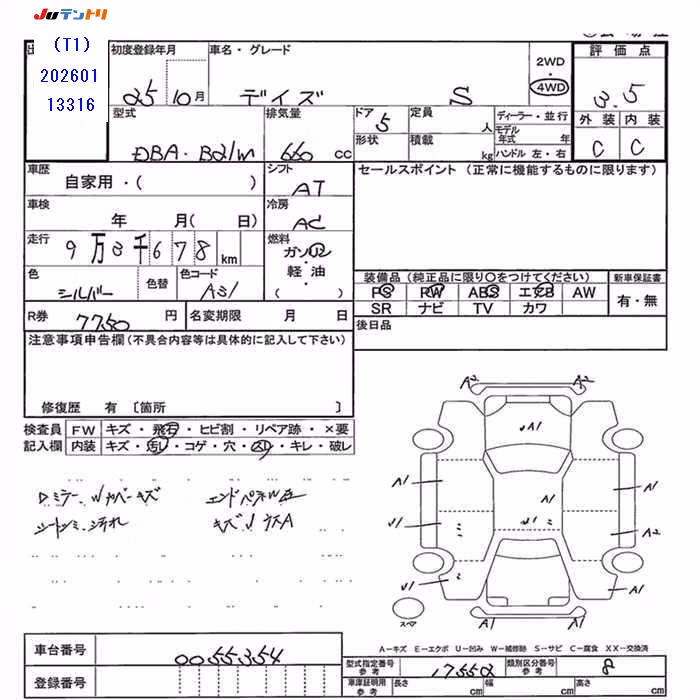 Juテントリ
(T1)
202601
13316
初度登録年月 車名・グレード 2WD・4WD 評価点
25 10月 デイズ S 3.5
型式 排気量 ドア 5 定員 人 ディーラー・並行 外装 内装
形状 積載 kg モデル年式 年 ハンドル 左・右 C C
DBA-B21W 660 cc
車歴 自家用・( ) シフト AT セールスポイント(正常に機能するものに限ります)
車検 年 月( 日) 冷房 AC
走行 9万3千678 km 燃料 ガソリン・軽油・( )
色 シルバー 色替 色コード A31
装備品(純正品に限り○をつけてください) 新車保証書
PS PW ABS エアB AW 有・無
SR ナビ TV カワ
R券 7750 円 名変期限 月 日 後日品
注意事項申告欄(不具合内容等は具体的に記入して下さい)
修復歴 有 〔箇所 〕
検査員 FW キズ・飛石・ヒビ割・リペア跡・×要
記入欄 内装 キズ・汚レ・コゲ・穴・スレ・キレ・破レ
ミラー カバーキズ エンドパネル
シートシミ汚れ キズ
A2 A2
A1
A1 A1 A1
A2
A1
A1 A1
スペア
A-キズ E-エクボ U-凹み W-補修跡 S-サビ C-腐食 XX-交換済
車台番号 0055354
型式指定番号 参考 17552 類別区分番号 参考 8
登録番号
車庫証明用 参考 長さ cm 幅 cm 高さ cm